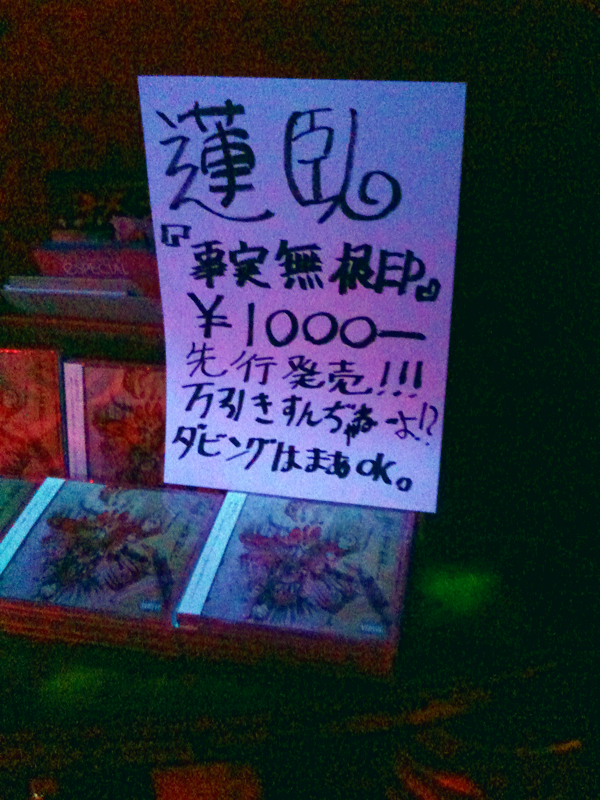 蓮臥
『事実無根印』
¥1000ー
先行発売!!!
万引きすんぢゃねーよ!?
ダビングはまあok。
SPECIAL